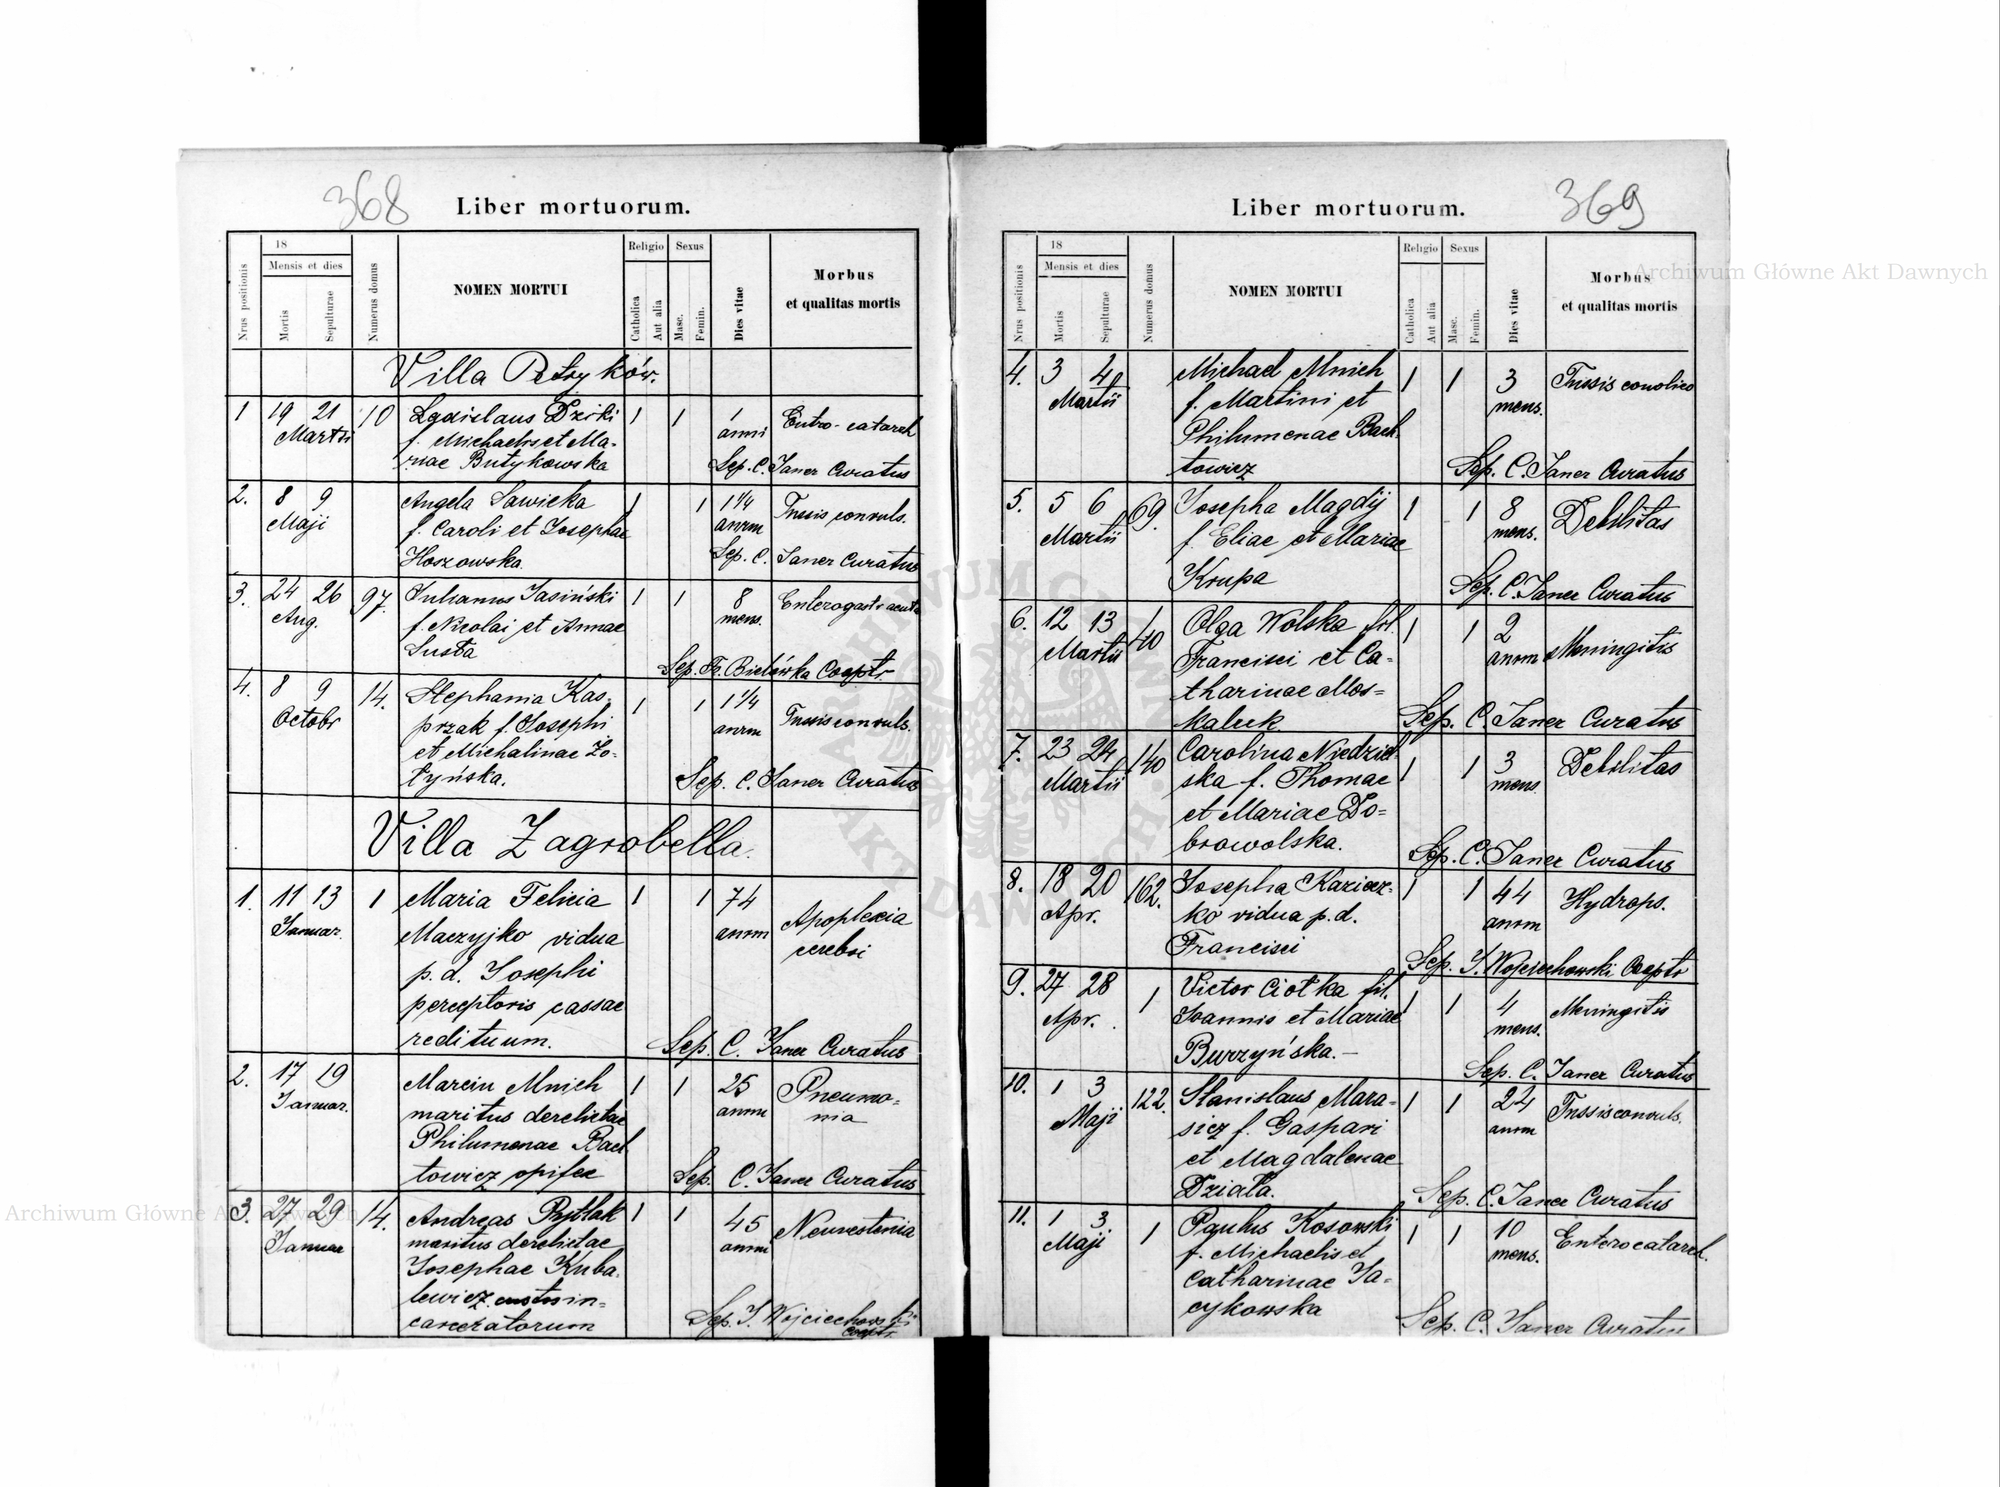 368
Liber mortuorum.
Nrus positionis
18
Mensis et dies
Mortis
Sepulturae
Numerus domus
NOMEN MORTUI
Religio
Catholica
Aut alia
Sexus
Masc.
Femin.
Dies vitae
Morbus
et qualitas mortis
Villa Petryków.
1 19 21 10 Ladislaus Dziki 1 1 1 Entro-catarrh
Martii f. Michaelis et Ma- anni
riae Butykowska Sep. C. Janer Curatus
2. 8 9 Angela Sawicka 1 1 1 1/4 Tussis convuls.
Maji f. Caroli et Josephae annm
Hoszowska. Sep. C. Janer Curatus
3. 24 26 97. Julianus Jasiński 1 1 8 Enterogastr acuta
Aug. f. Nicolai et Annae mens.
Susta Sep. Fr. Bielówka Cooptr
4. 8 9 14. Stephania Kas- 1 1 1 1/4 Tussis convuls.
Octobr przak f. Josephi annm
et Michalinae Zo-
tyńska. Sep. C. Janer Curatus
Villa Zagrobella.
1. 11 13 1 Maria Felicia 1 1 74 Apoplexia
Januar. Maczyjko vidua annm cerebri
p. d. Josephi
perceptoris cassae
redituum. Sep. C. Janer Curatus
2. 17 19 Marcin Mnich 1 1 25 Pneumo-
Januar. maritus derelictae annm nia
Philumenae Bach
towicz opifex Sep. C. Janer Curatus
3. 27 29 14. Andreas Pytlak 1 1 45 Neurestenia
Januar maritus derelictae annm
Josephae Kuba-
lewicz custos in-
carceratorum Sep. J. Wojciechowski
Cooptr.
369
Liber mortuorum.
Nrus positionis
18
Mensis et dies
Mortis
Sepulturae
Numerus domus
NOMEN MORTUI
Religio
Catholica
Aut alia
Sexus
Masc.
Femin.
Dies vitae
Morbus
et qualitas mortis
4. 3 4 Michael Mnich 1 1 3 Tussis
Martii f. Martini et mens.
Philumenae Bach-
towicz Sep. C. Janer Curatus
5. 5 6 69. Josepha Magdij 1 1 8 Debilitas
Martii f. Eliae et Mariae mens.
Krupa Sep. C. Janer Curatus
6. 12 13 140 Olga Wolska fil. 1 1 2 Meningitis
Martii Francisci et Ca- annm
tharinae Mos-
kaluk. Sep. C. Janer Curatus
7. 23 24 140 Carolina Niedziel- 1 1 3 Debilitas
Martii ska f. Thomae mens
et Mariae Do-
browolska. Sep. C. Janer Curatus
8. 18 20 162. Josepha 1 1 44 Hydrops.
Apr. ko vidua p. d. annm
Francisci Sep. J. Wojciechowski Cooptr
9. 27 28 1 Victor Ciotka fil. 1 1 4 Meningitis
Apr. Joannis et Mariae mens.
Burzyńska.- Sep. C. Janer Curatus
10. 1 3 122. Stanislaus Mara- 1 1 24 Tussis convuls.
Maji sicz f. Gaspari annm
et Magdalenae
Działa. Sep. C. Janer Curatus
11. 1 3 1 Paulus Kosowski 1 1 10 Enterocatarrh.
Maji f. Michaelis et mens.
Catharinae Ja-
cykowska Sep. C. Janer Curatus
Archiwum Główne Akt Dawnych
Archiwum Główne Akt Dawnych
ARCHIWUM GŁÓWNE AKT DAWNYCH